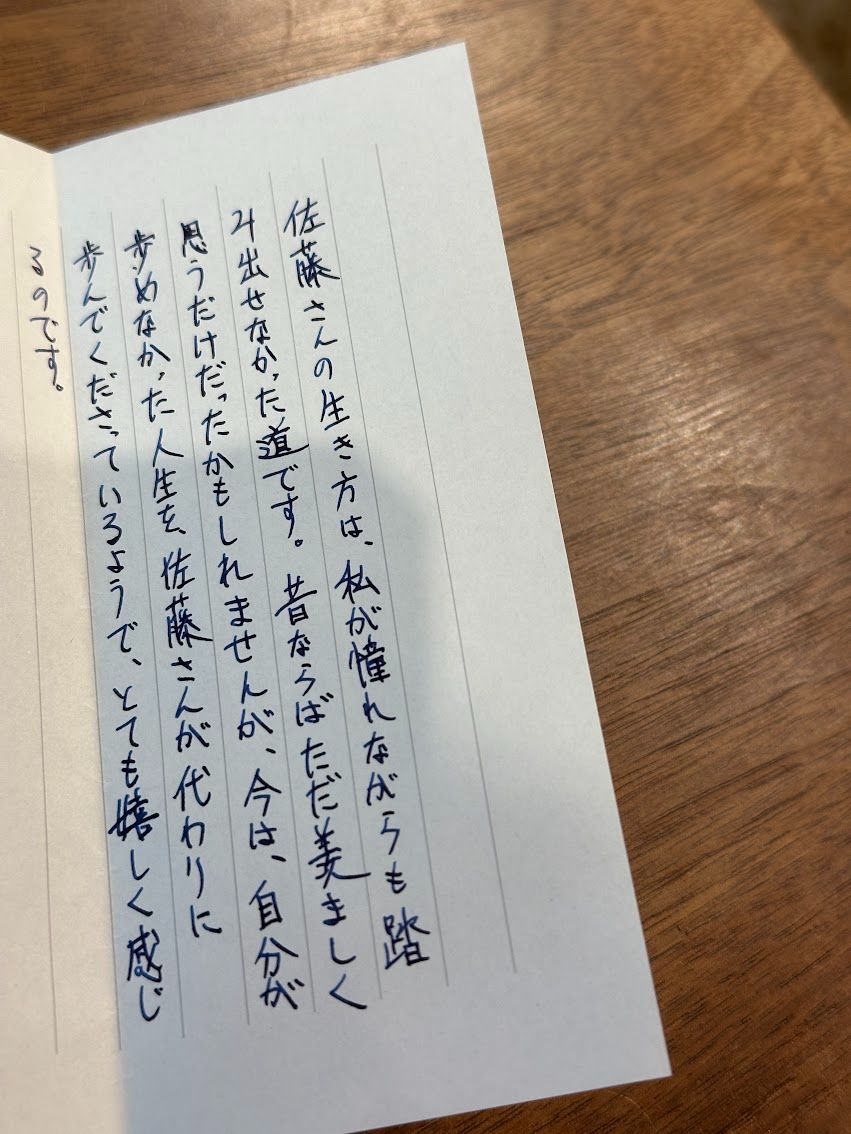 佐藤さんの生き方は、私が憧れながらも踏
み出せなかった道です。昔ならばただ羨ましく
思うだけだったかもしれませんが、今は、自分が
歩めなかった人生を、佐藤さんが代わりに
歩んでくださっているようで、とても嬉しく感じ
るのです。